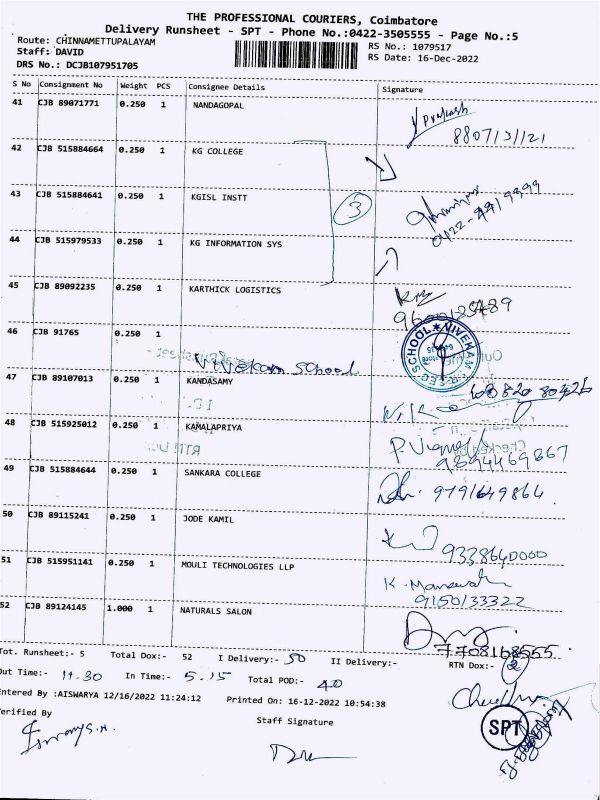 THE PROFESSIONAL COURIERS, Coimbatore
Delivery Runsheet - SPT - Phone No.:0422-3505555 - Page No.:5
Route: CHINNAMETTUPALAYAM
Staff: DAVID
DRS No.: DCJB107951705
RS No.: 1079517
RS Date: 16-Dec-2022
S No Consignment No Weight PCS Consignee Details Signature
41 CJB 89071771 0.250 1 NANDAGOPAL Prakash
8807131121
42 CJB 515884664 0.250 1 KG COLLEGE
43 CJB 515884641 0.250 1 KGISL INSTT 3
44 CJB 515979533 0.250 1 KG INFORMATION SYS
45 CJB 89092235 0.250 1 KARTHICK LOGISTICS
46 CJB 91765 0.250 1 Vivekam School
47 CJB 89107013 0.250 1 KANDASAMY
48 CJB 515925012 0.250 1 KAMALAPRIYA
9894469867
49 CJB 515884644 0.250 1 SANKARA COLLEGE 9791649864
50 CJB 89115241 0.250 1 JODE KAMIL
9338640000
51 CJB 515951141 0.250 1 MOULI TECHNOLOGIES LLP
9150133322
52 CJB 89124145 1.000 1 NATURALS SALON
7708168555
Tot. Runsheet:- 5 Total Dox:- 52 I Delivery:- 50 II Delivery:- RTN Dox:- 2
Out Time:- 11.30 In Time:- 5.15 Total POD:- 40
Entered By :AISWARYA 12/16/2022 11:24:12 Printed On: 16-12-2022 10:54:38
Verified By Staff Signature
SPT